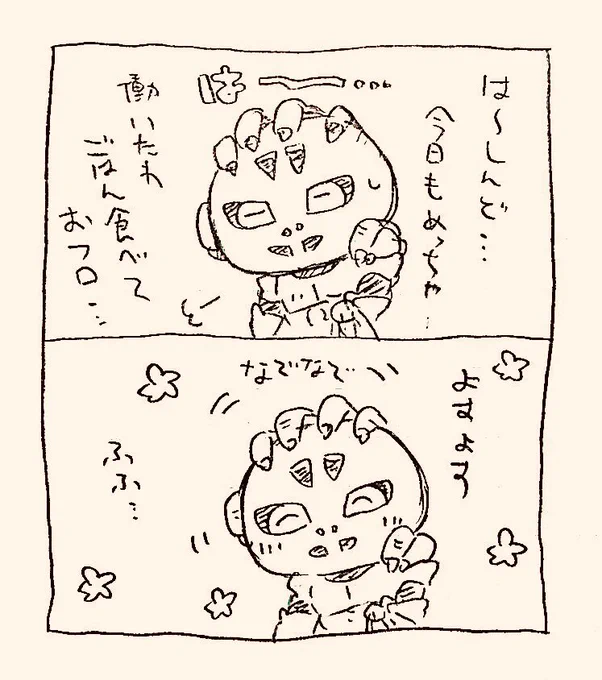 は〜しんど…
今日もめっちゃ…
は〜…
働いたわ
ごはん食べて
おフロ…
よすよす
なでなで
ふふ…